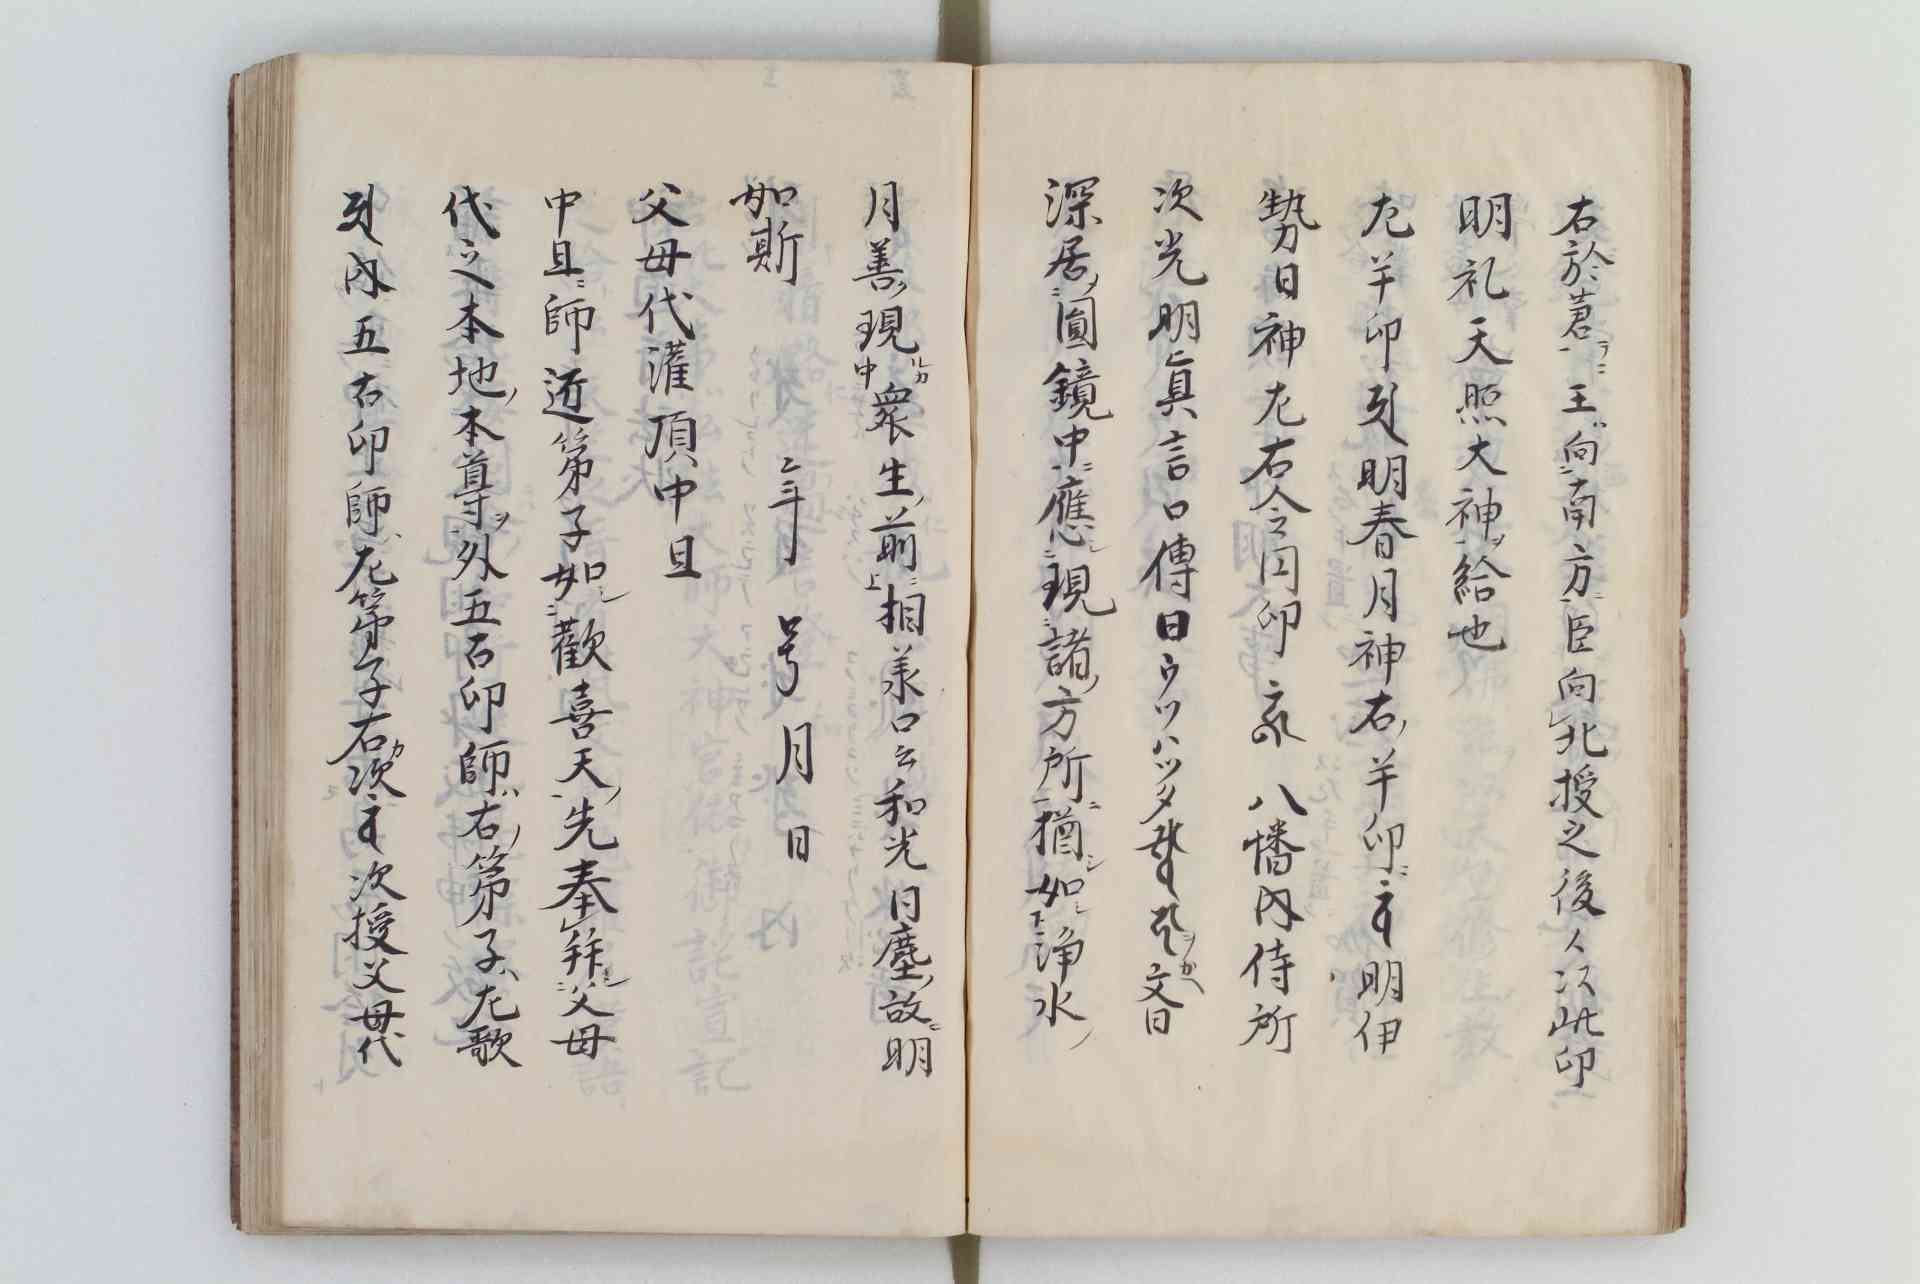 右於蒼ラニ王ハ向ニ南方ニ臣向レ北授之後人以此印
明礼天照大神ヲ給也
左羊印到明春月神右ノ羊印ニ明伊
勢日神左右合円印 八幡内侍所
次光明真言口傳曰ウツハツタ 文曰
深居ノ圓鏡中ニ應シ現諸ノ方所ニ猶シ如シ下浄水ノ
月善ノ現ルカ中衆生ノ前ニ上相羕口云和光同塵ノ故ニ明
如斯 年号月日
父母代灌頂中旦
中旦ニ師近第子如シ歡喜天ノ先奉レ拜シ父母
代之本地ノ本尊ヲ外五古印師ハ右ノ第子ハ左歌
到内五古印師ハ左第子右カ次 次授父母代